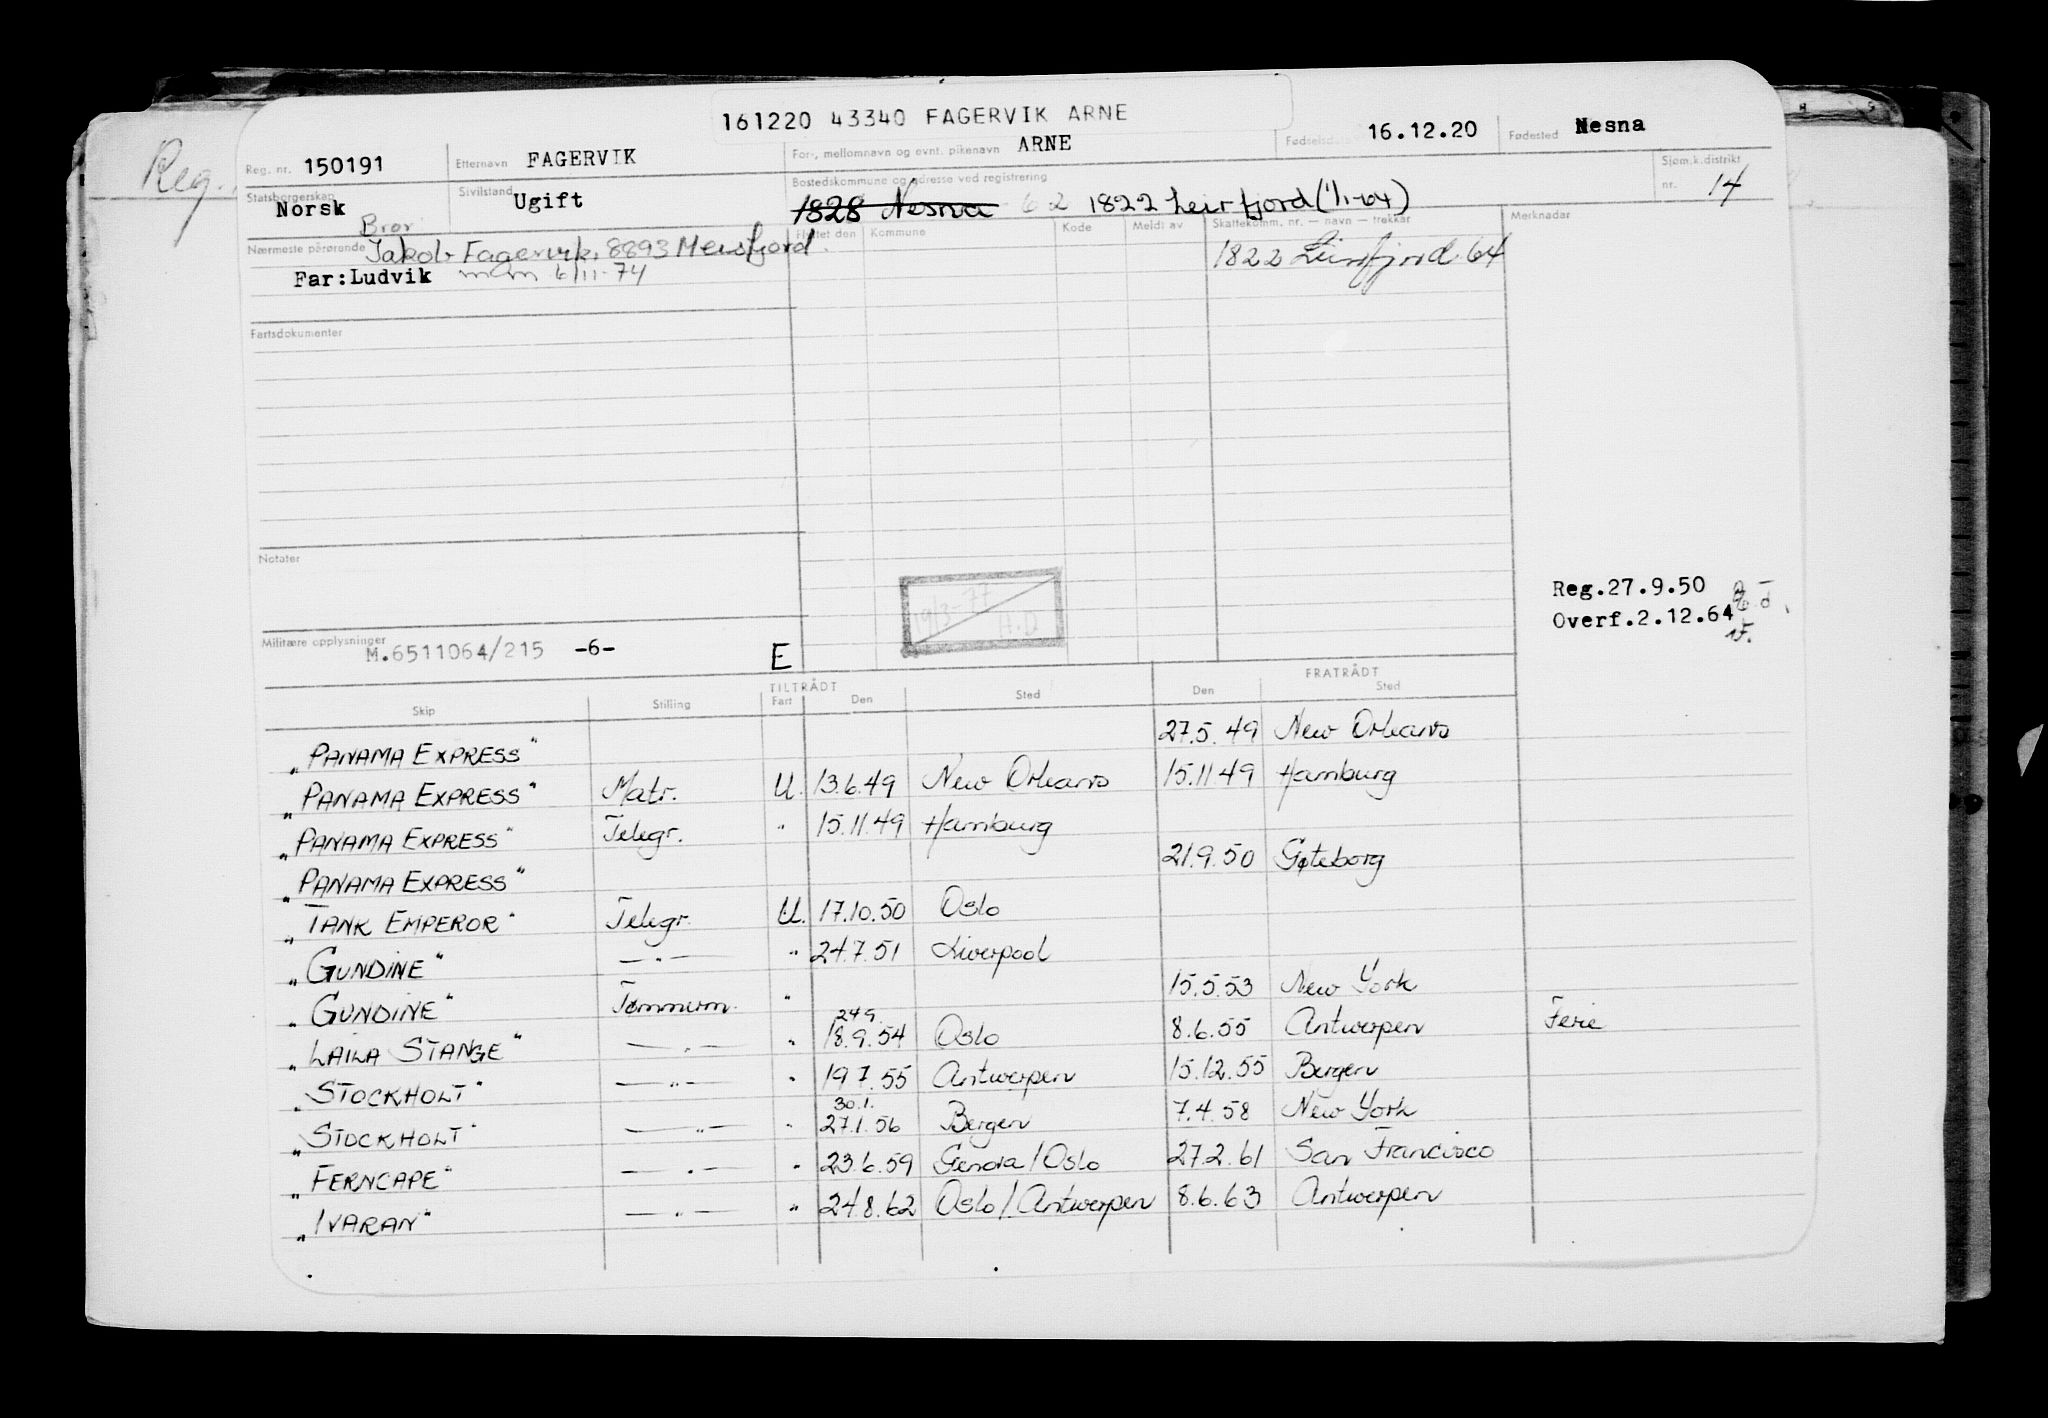 161220 43340 FAGERVIK ARNE
Reg.
Reg. nr. 150191 Etternavn FAGERVIK For-, mellomnavn og evnt. pikenavn ARNE Fødselsdato 16.12.20 Fødested Nesna
Statsborgerskap Norsk Sivilstand Ugift Bostedskommune og adresse ved registrering 1828 Nesna 62 1822 Leirfjord (1/1-64) Sjøm.k.distrikt nr. 14
Bror
Nærmeste pårørende Jakob Fagervik, 8893 Meisfjord Flyttet den Kommune Kode Meldt av Skattekomm. nr. — navn — trekkår Merknader
Far:Ludvik 6/11-74 1822 Leirfjord 64
Fartsdokumenter
Notater
19/3-77 A.D
Reg.27.9.50
Overf.2.12.64
Militære opplysninger M.6511064/215 -6- E
TILTRÅDT FRATRÅDT
Skip Stilling Fart Den Sted Den Sted
"PANAMA EXPRESS" 27.5.49 New Orleans
"PANAMA EXPRESS" Matr. U. 13.6.49 New Orleans 15.11.49 Hamburg
"PANAMA EXPRESS" Telegr. " 15.11.49 Hamburg
"PANAMA EXPRESS" 21.9.50 Gøteborg
"TANK EMPEROR" Telegr. U. 17.10.50 Oslo
"GUNDINE" —"— " 24.7.51 Liverpool
"GUNDINE" Tømmerm. " 15.5.53 New York
24.9.
"LAILA STANGE" —"— " 18.9.54 Oslo 8.6.55 Antwerpen Ferie
"STOCKHOLT" —"— " 19.7.55 Antwerpen 15.12.55 Bergen
30.1.
"STOCKHOLT" —"— " 27.1.56 Bergen 7.4.58 New York
"FERNCAPE" —"— " 23.6.59 Genova/Oslo 27.2.61 San Francisco
"IVARAN" —"— " 24.8.62 Oslo/Antwerpen 8.6.63 Antwerpen